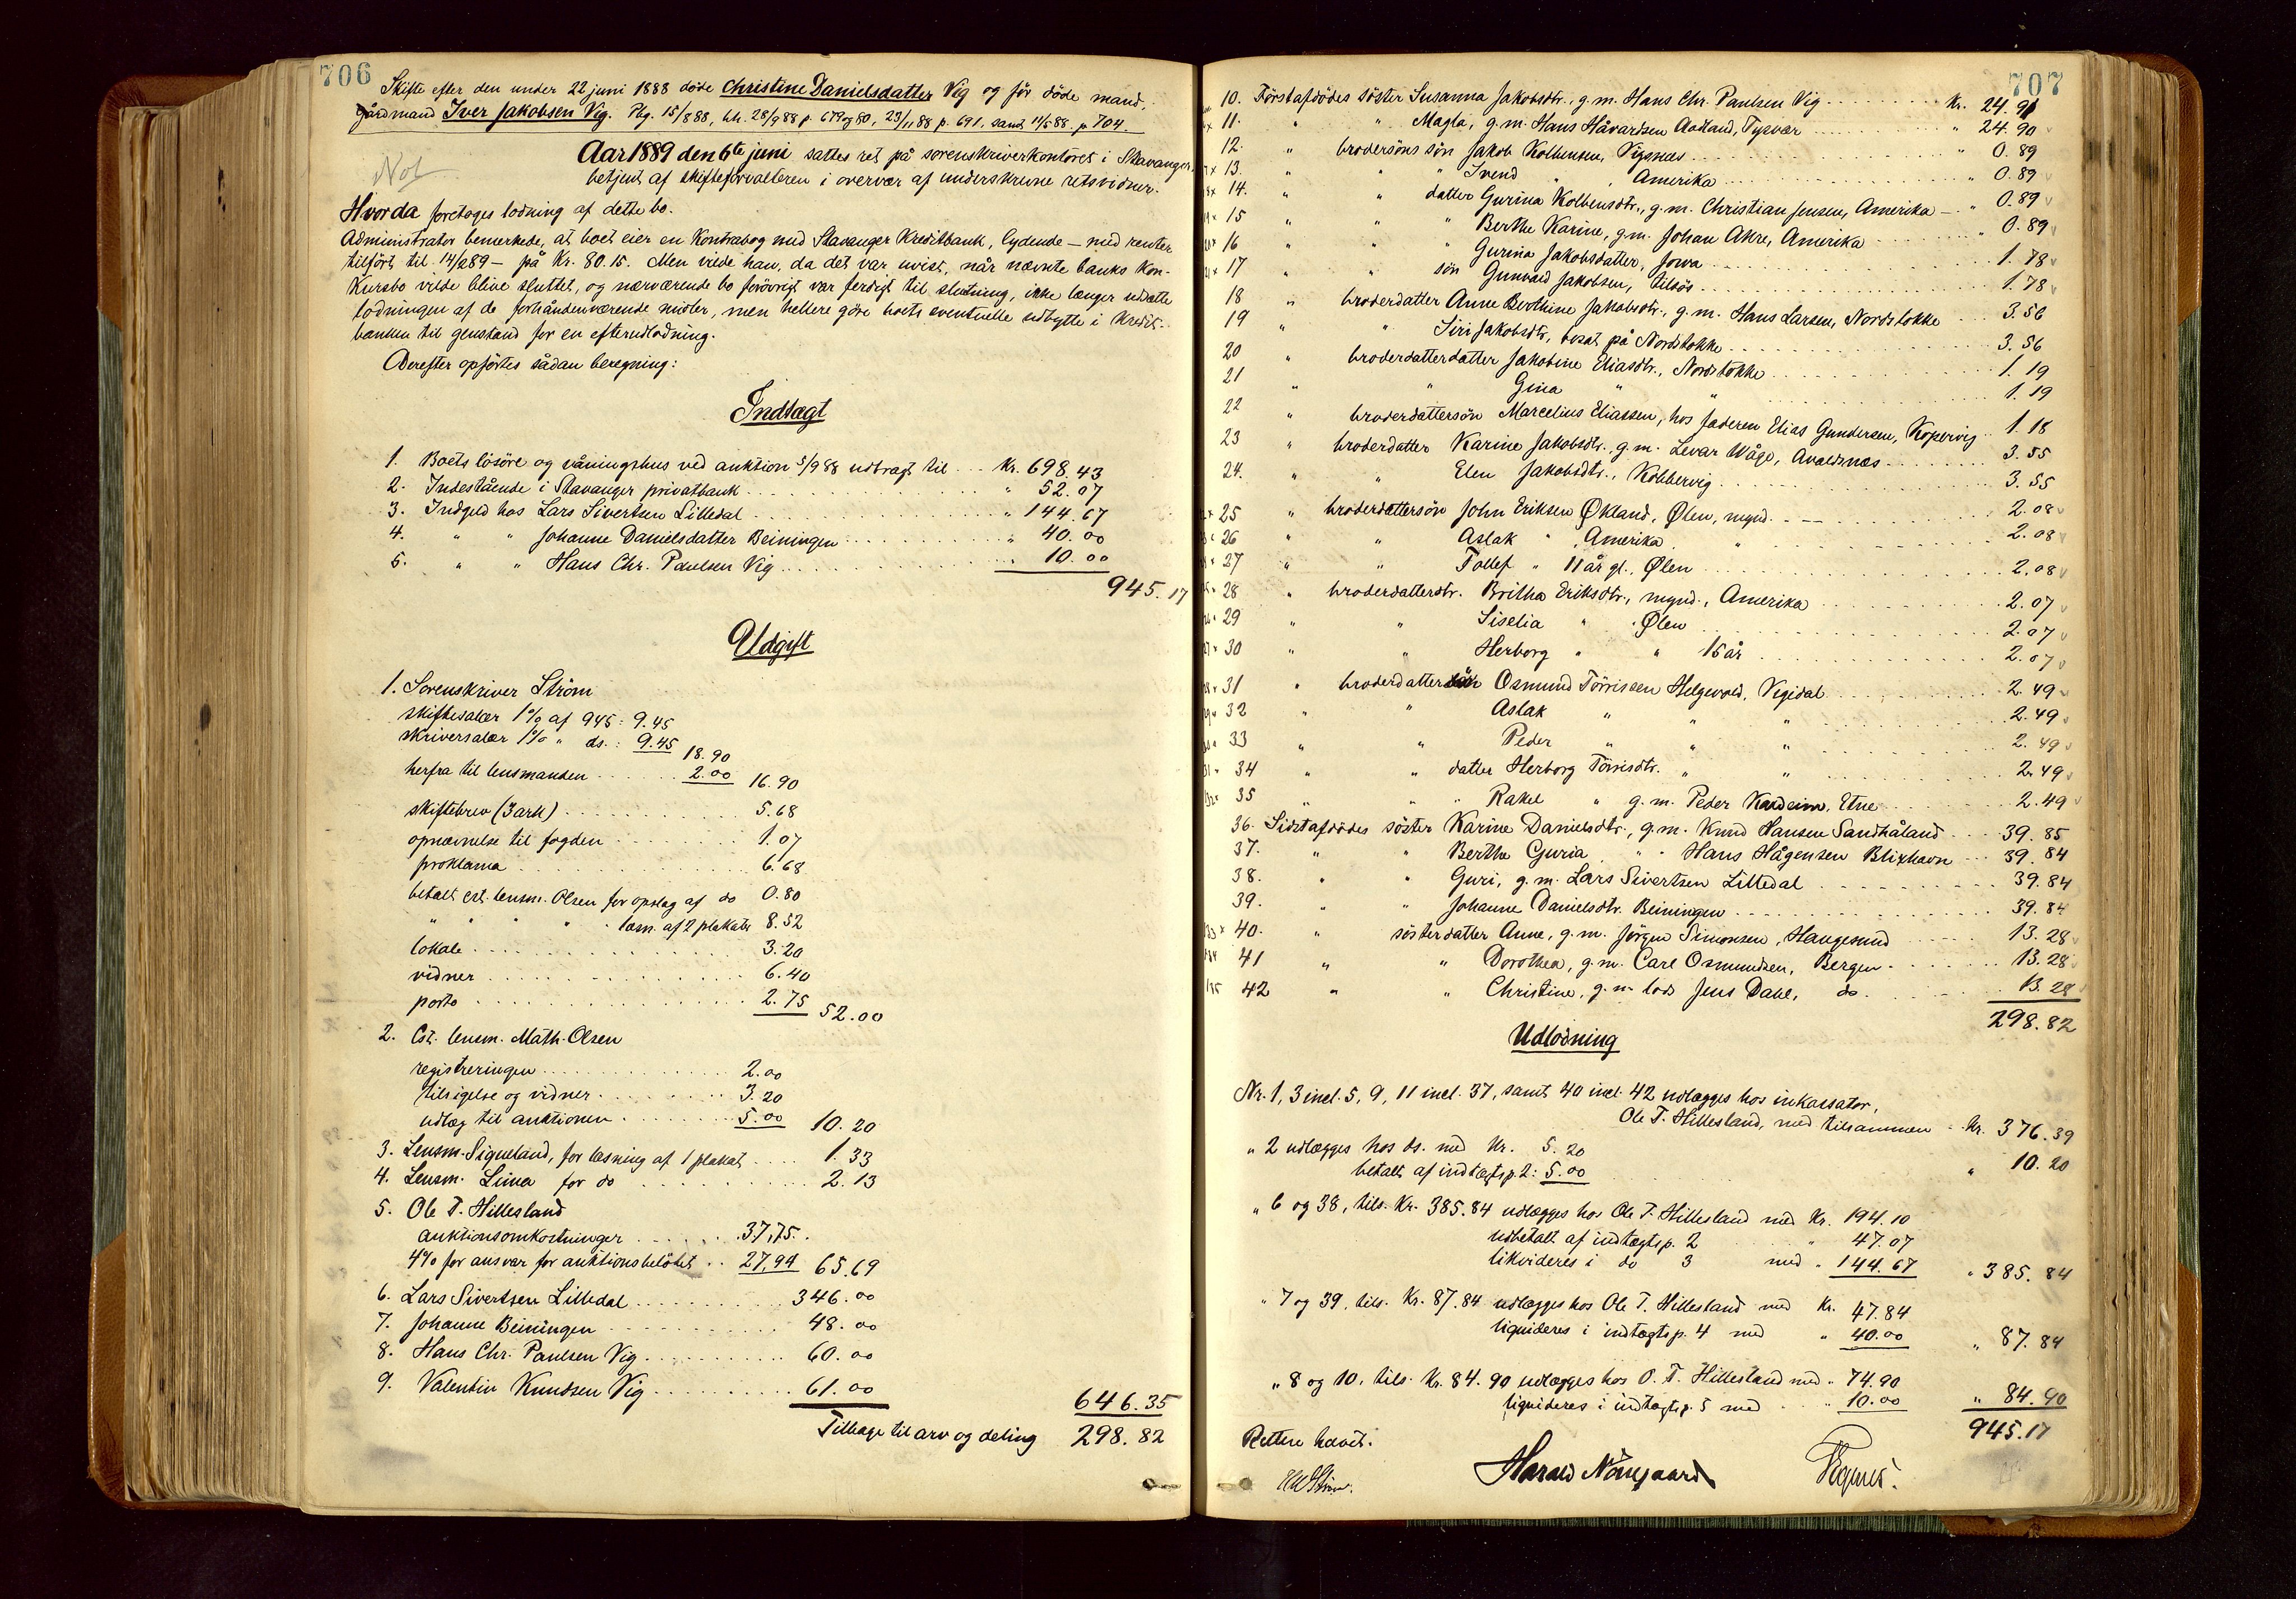 706
Skifte efter den under 22 juni 1888 döde Christine Danielsdatter Vig og för döde mand,
gårdmand Iver Jakobsen Vig. Pbg. 15/8 88, bh. 28/9 88 p. 679 og 80, 23/11 88 p. 691, samt 14/5 88 p. 704.
Not
Aar 1889 den 6te juni sattes ret på sorenskriverkontoret i Stavanger,
betjent af skifteforvalteren i overvær af underskrevne retsvidner.
Hvorda foretoges lodning af dette bo.
Administrator bemerkede, at boet eier en Kontrabog med Stavanger Kreditbank, lydende – med renter
tilfört til 14/2 89 – på Kr. 80.15. Men vilde han, da det var uvist, når nævnte banks Kon-
kursbo vilde blive sluttet, og nærværende bo forövrigt var ferdigt til slutning, ikke længer udsætte
lodningen af de forhåndenværende midler, men hellere göre boets eventuelle udbytte i Kredit-
banken til genstand for en efterudlodning.
Derefter opförtes sådan beregning:
Indtægt
1. Boets lösöre og våningshus ved auktion 5/9 88 udbragt til Kr. 698.43
2. Indestående i Stavanger privatbank " 52.07
3. Indgeld hos Lars Sivertsen Lilledal " 144.67
4. " " Johanne Danielsdatter Beiningen " 40.00
5. " " Hans Chr. Paulsen Vig " 10.00
945.17
Udgift
1. Sorenskriver Ström
skiftesalær 1% af 945: 9.45
skriversalær 1% " ds.: 9.45 18.90
herfra til lensmanden 2.00 16.90
skiftebrev (3 ark) 5.68
opnævnelse til fogden 1.07
proklama 6.68
betalt cst. lensm. Olsen for opslag af do 0.80
" " " " læsn. af 2 plakater 8.52
lokale 3.20
vidner 6.40
porto 2.75 52.00
2. Cst. lensm. Math. Olsen
registreringen 2.00
tilsigelse og vidner 3.20
udlæg til auktionen 5.00 10.20
3. Lensm. Siqueland, for læsning af 1 plakat 1.33
4. Lensm. Lima for do 2.13
5. Ole T. Hillesland
auktionsomkostninger 37,75
4% for ansvar for auktionsbelöbet 27,94 65.69
6. Lars Sivertsen Lilledal 346.00
7. Johanne Beiningen 48.00
8. Hans Chr. Paulsen Vig 60.00
9. Valentin Knudsen Vig 61.00
646.35
Tilbage til arv og deling 298.82
707
10. Förstafdödes söster Susanna Jakobsdtr., g.m. Hans Chr. Paulsen Vig Kr. 24.90
11. " " Magla, g.m. Hans Håvardsen Aadland, Tysvær " 24.90
12. " brodersöns sön Jakob Kolbensen, Vigsnæs " 0.89
13. " " " Svend " , Amerika " 0.89
14. " " datter Gurina Kolbensdtr., g.m. Christian Jensen, Amerika " 0.89
15 " " " Berthe Karine, g.m. Johan Akre, Amerika " 0.89
16 " " " Gurina Jakobsdatter, Iowa 1.78
17 " " sön Gunvald Jakobsen, tilsös 1.78
18 " broderdatter Anne Berthine Jakobsdtr., g.m. Hans Larsen, Nordstokke 3.56
19 " " Siri Jakobsdtr, bosat på Nordstokke 3.56
20 " broderdatterdatter Jakobine Eliasdtr., Nordstokke 1.19
21 " " Gina " " 1.19
22 " broderdattersön Marcelius Eliassen, hos faderen Elias Gundersen, Kopervig 1.18
23 " broderdatter Karine Jakobsdtr., g.m. Levar Våge, Avaldsnes 3.55
24. " " Elen Jakobsdtr., Kobbervig 3.55
25 " broderdattersön John Eriksen Økland, Ølen, mynd. 2.08
26 " " Aslak " , Amerika " 2.08
27 " " Tollef " 11 år gl., Ølen 2.08
28 " broderdatterdtr. Britha Eriksdtr., mynd., Amerika 2.07
29 " " Siselia " , Ølen 2.07
30 " Herborg " " 15 år 2.07
31 " broderdattersön Osmund Törrissen Helgevold, Vigidal 2.49
32 " " Aslak " " " 2.49
33 " " Peder " " " 2.49
34 " " datter Herborg Törrisdtr. " " 2.49
35 " " " Rakel " g.m. Peder Kaldeim, Etne 2.49
36. Sidstafdödes söster Karine Danielsdtr., g.m. Knud Hansen Sandhåland 39.85
37. " " Berthe Guria " " Hans Hågensen Blixhavn 39.84
38. " " Guri, g.m. Lars Sivertsen Lilledal 39.84
39. " " Johanne Danielsdtr. Beiningen 39.84
40. " sösterdatter Anne, g.m. Jörgen Simonsen, Haugesund 13.28
41 " " Dorothea, g.m. Carl Osmundsen, Bergen 13.28
42 " " Christine, g.m. lods Jens Dahl, do. 13.28
298.82
Udlodning
Nr. 1, 3 incl. 5, 9, 11 incl. 37, samt 40 incl. 42 udlægges hos inkassator,
Ole T. Hillesland, med tilsammen Kr. 376.39
" 2 udlægges hos ds. med Kr. 5.20
betalt af indtægtsp. 2: 5.00 " 10.20
" 6 og 38, tils. Kr. 385.84 udlægges hos Ole T. Hillesland med Kr. 194.10
udbetalt af indtægtsp. 2 " 47.07
likvideres i do 3 med " 144.67 " 385.84
" 7 og 39, tils. Kr. 87.84 udlægges hos Ole T. Hillesland med Kr. 47.84
liquideres i indtægtsp. 4 med " 40.00 " 87.84
" 8 og 10, tils. Kr. 84.90 udlægges hos O. T. Hillesland med " 74.90
liquideres i indtægtsp. 5 med " 10.00 " 84.90
945.17
Retten hævet.
Harald Nörregaard